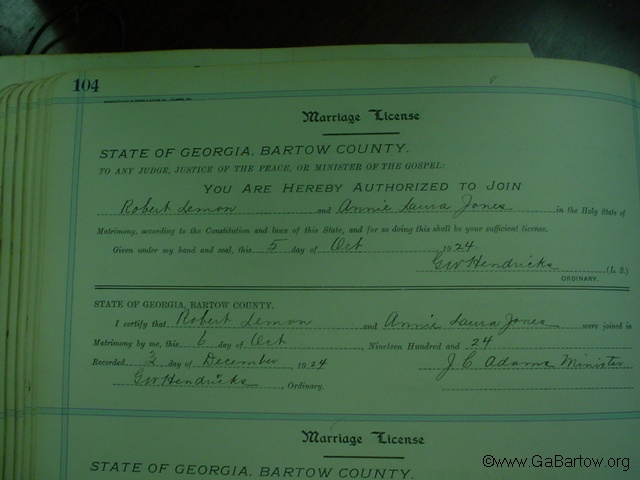 104
Marriage License
STATE OF GEORGIA, BARTOW COUNTY.
TO ANY JUDGE, JUSTICE OF THE PEACE, OR MINISTER OF THE GOSPEL:
YOU ARE HEREBY AUTHORIZED TO JOIN
Robert Lemon and Annie Laura Jones in the Holy State of
Matrimony, according to the Constitution and laws of this State, and for so doing this shall be your sufficient license.
Given under my hand and seal, this 5 day of Oct 1924.
GW Hendricks (L. S.)
ORDINARY.
STATE OF GEORGIA, BARTOW COUNTY.
I certify that Robert Lemon and Annie Laura Jones were joined in
Matrimony by me, this 6 day of Oct, Nineteen Hundred and 24
Recorded 2 day of December 1924 J. C. Adams Minister
GW Hendricks, Ordinary.
Marriage License
STATE OF GEORGIA, BARTOW COUNTY.
©www.GaBartow.org